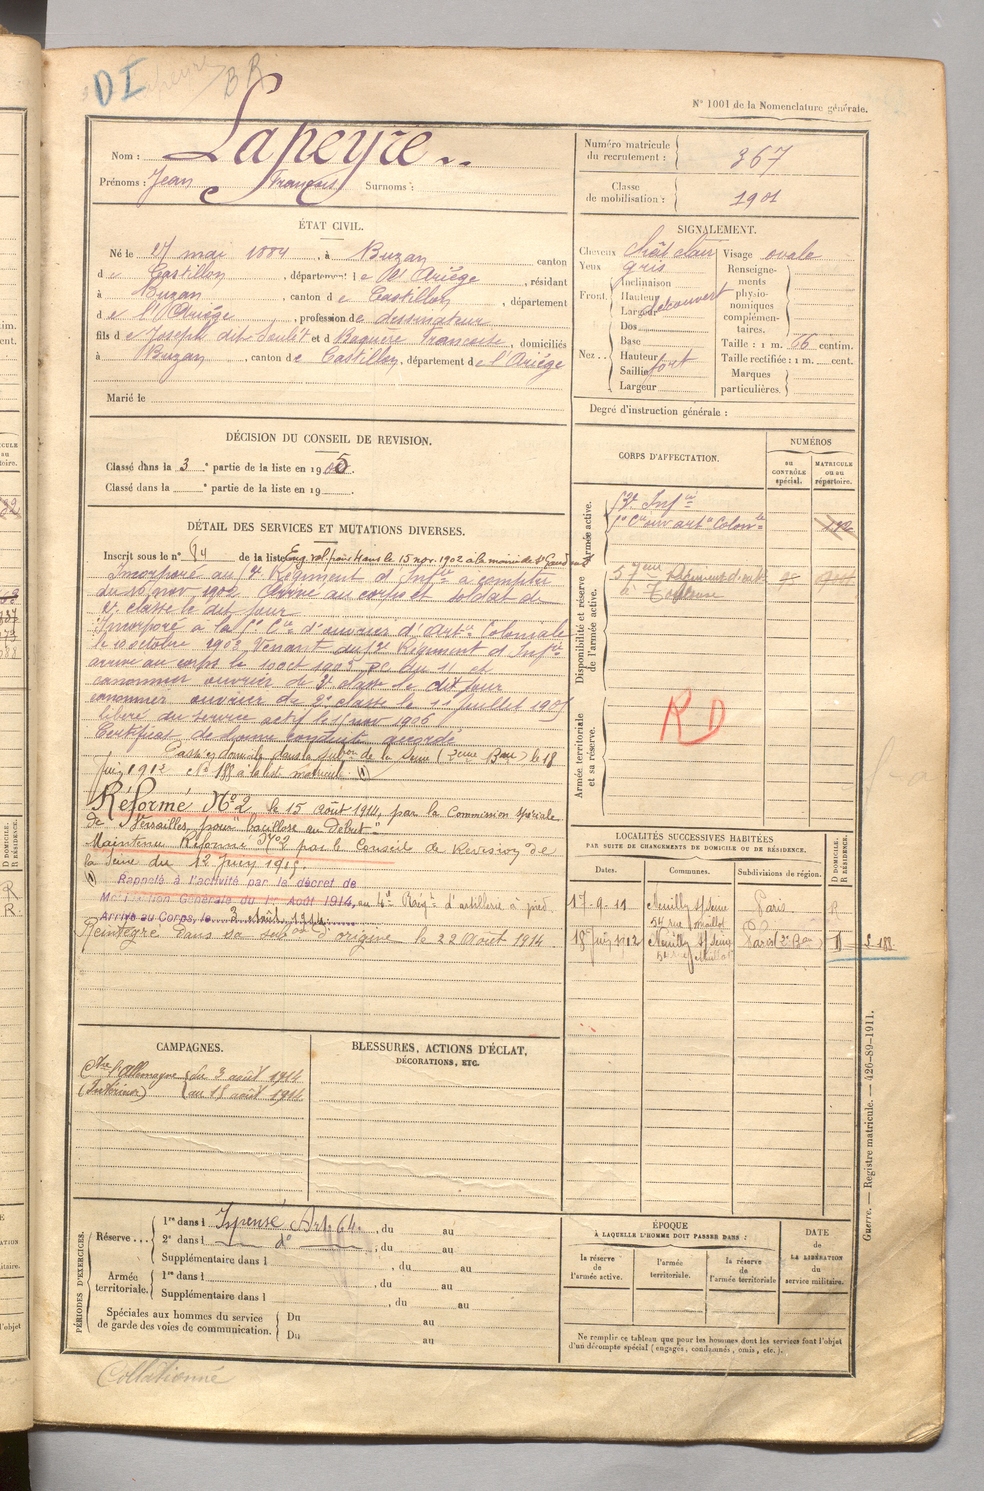 DI
BR
N° 1001 de la Nomenclature générale.
Nom : Lapeyre
Prénoms : Jean François Surnoms :
Numéro matricule du recrutement : 367
Classe de mobilisation : 1901
ÉTAT CIVIL.
Né le 27 mai 1884, à Buzan, canton
de Castillon, département de l'Ariége, résidant
à Buzan, canton de Castillon, département
de l'Ariége, profession de dessinateur
fils de Joseph dit Soulét et de Françoise, domiciliés
à Buzan, canton de Castillon, département de l'Ariége
Marié le
SIGNALEMENT.
Cheveux chât clair
Yeux gris
Front. Inclinaison
Hauteur découvert
Largeur
Nez... Dos
Base
Hauteur
Saillie fort
Largeur
Visage ovale
Renseignements physionomiques complémentaires.
Taille : 1 m. 66 centim.
Taille rectifiée : 1 m. cent.
Marques particulières.
Degré d'instruction générale :
DÉCISION DU CONSEIL DE REVISION.
Classé dans la 3e partie de la liste en 1905.
Classé dans la e partie de la liste en 19 .
DÉTAIL DES SERVICES ET MUTATIONS DIVERSES.
Inscrit sous le n° 84 de la liste Eng. vol. pour 4 ans le 15 nov. 1902 à la mairie de St Gaudens
Incorporé au Régiment d'Infie à compter
du nov. 1902 Arrivé au corps et soldat de
2e classe le dit jour
Incorporé à la Cie d'ouvriers d'Artie Coloniale
le 10 octobre 1903 Venant du Régiment d'Infie
arrivé au corps le 10 oct 1903 et
canonnier ouvrier de 3e classe le dit jour
canonnier ouvrier de 2e classe le 11 juillet 1905
libéré du service actif le nov 1906
Certificat de bonne conduite accordé
Passé domicilié dans la subon de la Seine (2eme Bau) le 18
juin 1912 No 188 à la liste matricule (1)
Réformé No 2 le 15 Août 1914, par la Commission spéciale
de Versailles, pour "bacillose au début"
Maintenu Réformé No 2 par le Conseil de Revision de
la Seine du 12 Juin 1915.
(1) Rappelé à l'activité par le décret de
Mobilisation Générale du 1er Août 1914, au 4e Régt d'artillerie à pied.
Arrivé au Corps, le 3 Août 1914
Réintégré dans sa subon d'origine le 22 Août 1914.
CORPS D'AFFECTATION.
NUMÉROS
au CONTRÔLE spécial.
MATRICULE ou au répertoire.
Armée active.
Infie
Cie ouv artie Colonle
Disponibilité et réserve de l'armée active.
57eme Régiment d'artie
à Toulouse
Armée territoriale et sa réserve.
RD
LOCALITÉS SUCCESSIVES HABITÉES
PAR SUITE DE CHANGEMENTS DE DOMICILE OU DE RÉSIDENCE.
Dates. Communes. Subdivisions de région. D DOMICILE. R RÉSIDENCE.
17-9-11 Neuilly s/ Seine Paris R
54 rue Chauillot
18 Juin 1912 Neuilly s/ Seine Paris (2e Bau) D 188
CAMPAGNES.
Ctre l'Allemagne du 3 août 1914
(Intérieur) au 15 août 1914
BLESSURES, ACTIONS D'ÉCLAT,
DÉCORATIONS, ETC.
PÉRIODES D'EXERCICES.
Réserve... 1re dans l Dispensé Art. 64., du au
2e dans l do, du au
Supplémentaire dans l , du au
Armée territoriale. 1re dans l , du au
Supplémentaire dans l , du au
Spéciales aux hommes du service de garde des voies de communication. Du au
Du au
ÉPOQUE
À LAQUELLE L'HOMME DOIT PASSER DANS :
la réserve de l'armée active.
l'armée territoriale.
la réserve de l'armée territoriale
DATE de LA LIBÉRATION du service militaire.
Ne remplir ce tableau que pour les hommes dont les services font l'objet
d'un décompte spécial (engagés, condamnés, omis, etc.).
Guerre. — Registre matricule. — 426-89-1911.
Collationné